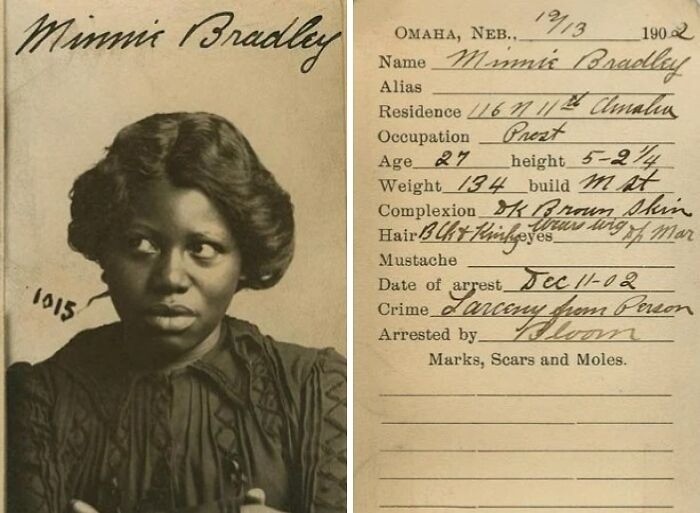 Minnie Bradley
1015
OMAHA, NEB., 12/13 1902
Name Minnie Bradley
Alias
Residence 116 N 11th Omaha
Occupation Prost
Age 27 height 5-2 1/4
Weight 134 build M St
Complexion Dk Brown Skin
Hair Blk & Kinky eyes Mar
Mustache
Date of arrest Dec 11-02
Crime Larceny from Person
Arrested by Bloom
Marks, Scars and Moles.